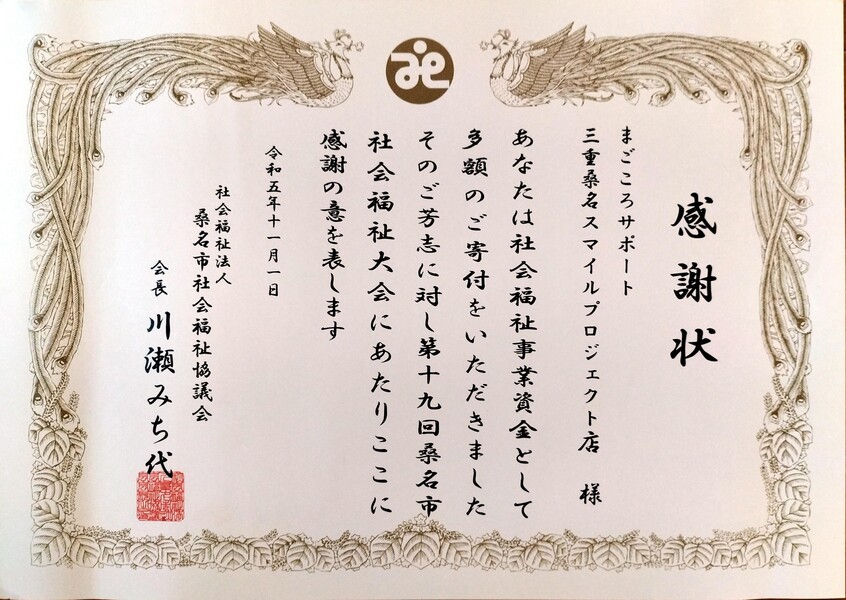 感謝状
まごころサポート
三重桑名スマイルプロジェクト店 様
あなたは社会福祉事業資金として
多額のご寄付をいただきました
そのご芳志に対し第十九回桑名市
社会福祉大会にあたりここに
感謝の意を表します
令和五年十一月一日
社会福祉法人
桑名市社会福祉協議会
会長 川瀬みち代